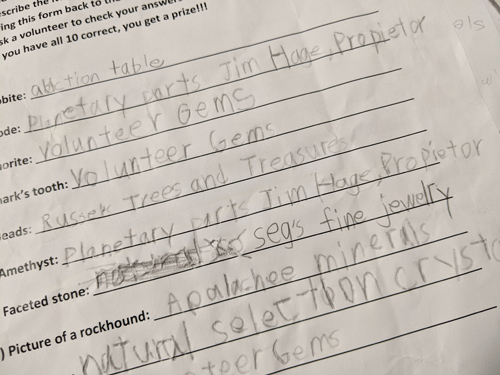 escribe the
ing this form back to the
sk a volunteer to check your answer
you have all 10 correct, you get a prize!!!
obite: abction table
ode: Planetary parts Jim Hage, Propietor
orite: Volunteer Gems
hark's tooth: Volunteer Gems
eads: Russels Trees and Treasures
Amethyst: Planetary parts Jim Hage, Propietor
Faceted stone: segs fine jewelry
) Picture of a rockhound: Apalachee minerals
natural selection crysta
teer Gems